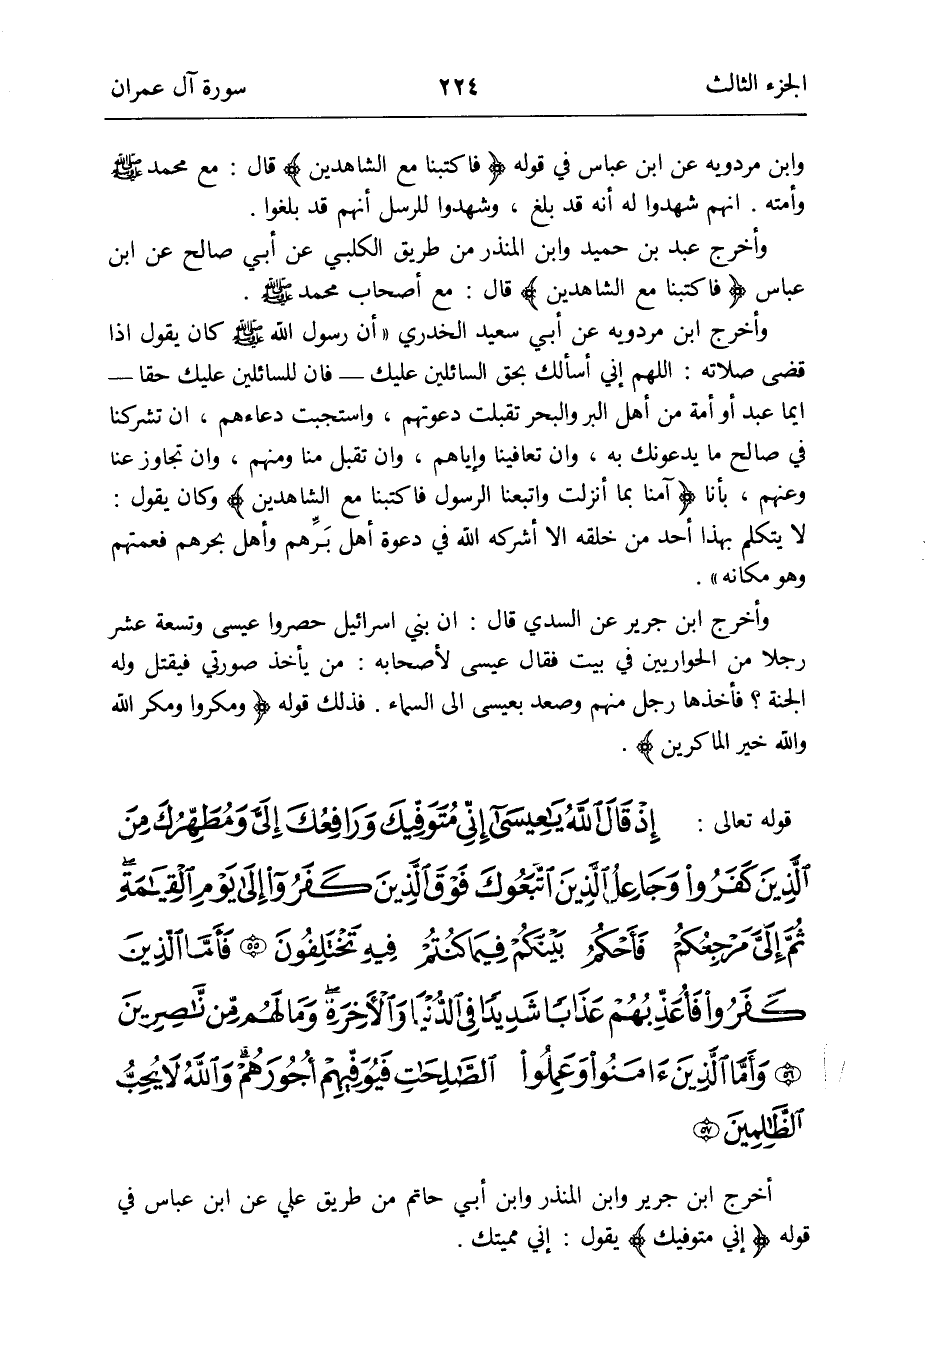 الجزء الثالث ٢٢٤ سورة آل عمران
وابن مردويه عن ابن عباس في قوله ﴿ فاكتبنا مع الشاهدين ﴾ قال : مع محمد ﷺ
وأمته . انهم شهدوا له أنه قد بلغ ، وشهدوا للرسل أنهم قد بلغوا .
وأخرج عبد بن حميد وابن المنذر من طريق الكلبي عن أبي صالح عن ابن
عباس ﴿ فاكتبنا مع الشاهدين ﴾ قال : مع أصحاب محمد ﷺ .
وأخرج ابن مردويه عن أبي سعيد الخدري « أن رسول الله ﷺ كان يقول اذا
قضى صلاته : اللهم إني أسألك بحق السائلين عليك — فان للسائلين عليك حقا —
ايما عبد أو أمة من أهل البر والبحر تقبلت دعوتهم ، واستجبت دعاءهم ، ان تشركنا
في صالح ما يدعونك به ، وان تعافينا وإياهم ، وان تقبل منا ومنهم ، وان تجاوز عنا
وعنهم ، بأنا ﴿ آمنا بما أنزلت واتبعنا الرسول فاكتبنا مع الشاهدين ﴾ وكان يقول :
لا يتكلم بهذا أحد من خلقه الا أشركه الله في دعوة أهل بَرِّهم وأهل بحرهم فعمتهم
وهو مكانه » .
وأخرج ابن جرير عن السدي قال : ان بني اسرائيل حصروا عيسى وتسعة عشر
رجلا من الحواريين في بيت فقال عيسى لأصحابه : من يأخذ صورتي فيقتل وله
الجنة ؟ فأخذها رجل منهم وصعد بعيسى الى السماء . فذلك قوله ﴿ ومكروا ومكر الله
والله خير الماكرين ﴾ .
قوله تعالى : إِذْ قَالَ ٱللَّهُ يَٰعِيسَىٰٓ إِنِّي مُتَوَفِّيكَ وَرَافِعُكَ إِلَيَّ وَمُطَهِّرُكَ مِنَ
ٱلَّذِينَ كَفَرُواْ وَجَاعِلُ ٱلَّذِينَ ٱتَّبَعُوكَ فَوْقَ ٱلَّذِينَ كَفَرُوٓاْ إِلَىٰ يَوْمِ ٱلْقِيَٰمَةِۖ
ثُمَّ إِلَيَّ مَرْجِعُكُمْ فَأَحْكُمُ بَيْنَكُمْ فِيمَا كُنتُمْ فِيهِ تَخْتَلِفُونَ ﴿٥٥﴾ فَأَمَّا ٱلَّذِينَ
كَفَرُواْ فَأُعَذِّبُهُمْ عَذَابًا شَدِيدًا فِي ٱلدُّنْيَا وَٱلْأٓخِرَةِۖ وَمَا لَهُم مِّن نَّٰصِرِينَ
﴿٥٦﴾ وَأَمَّا ٱلَّذِينَ ءَامَنُواْ وَعَمِلُواْ ٱلصَّٰلِحَٰتِ فَيُوَفِّيهِمْ أُجُورَهُمْۗ وَٱللَّهُ لَا يُحِبُّ
ٱلظَّٰلِمِينَ ﴿٥٧﴾
أخرج ابن جرير وابن المنذر وابن أبي حاتم من طريق علي عن ابن عباس في
قوله ﴿ إني متوفيك ﴾ يقول : إني مميتك .